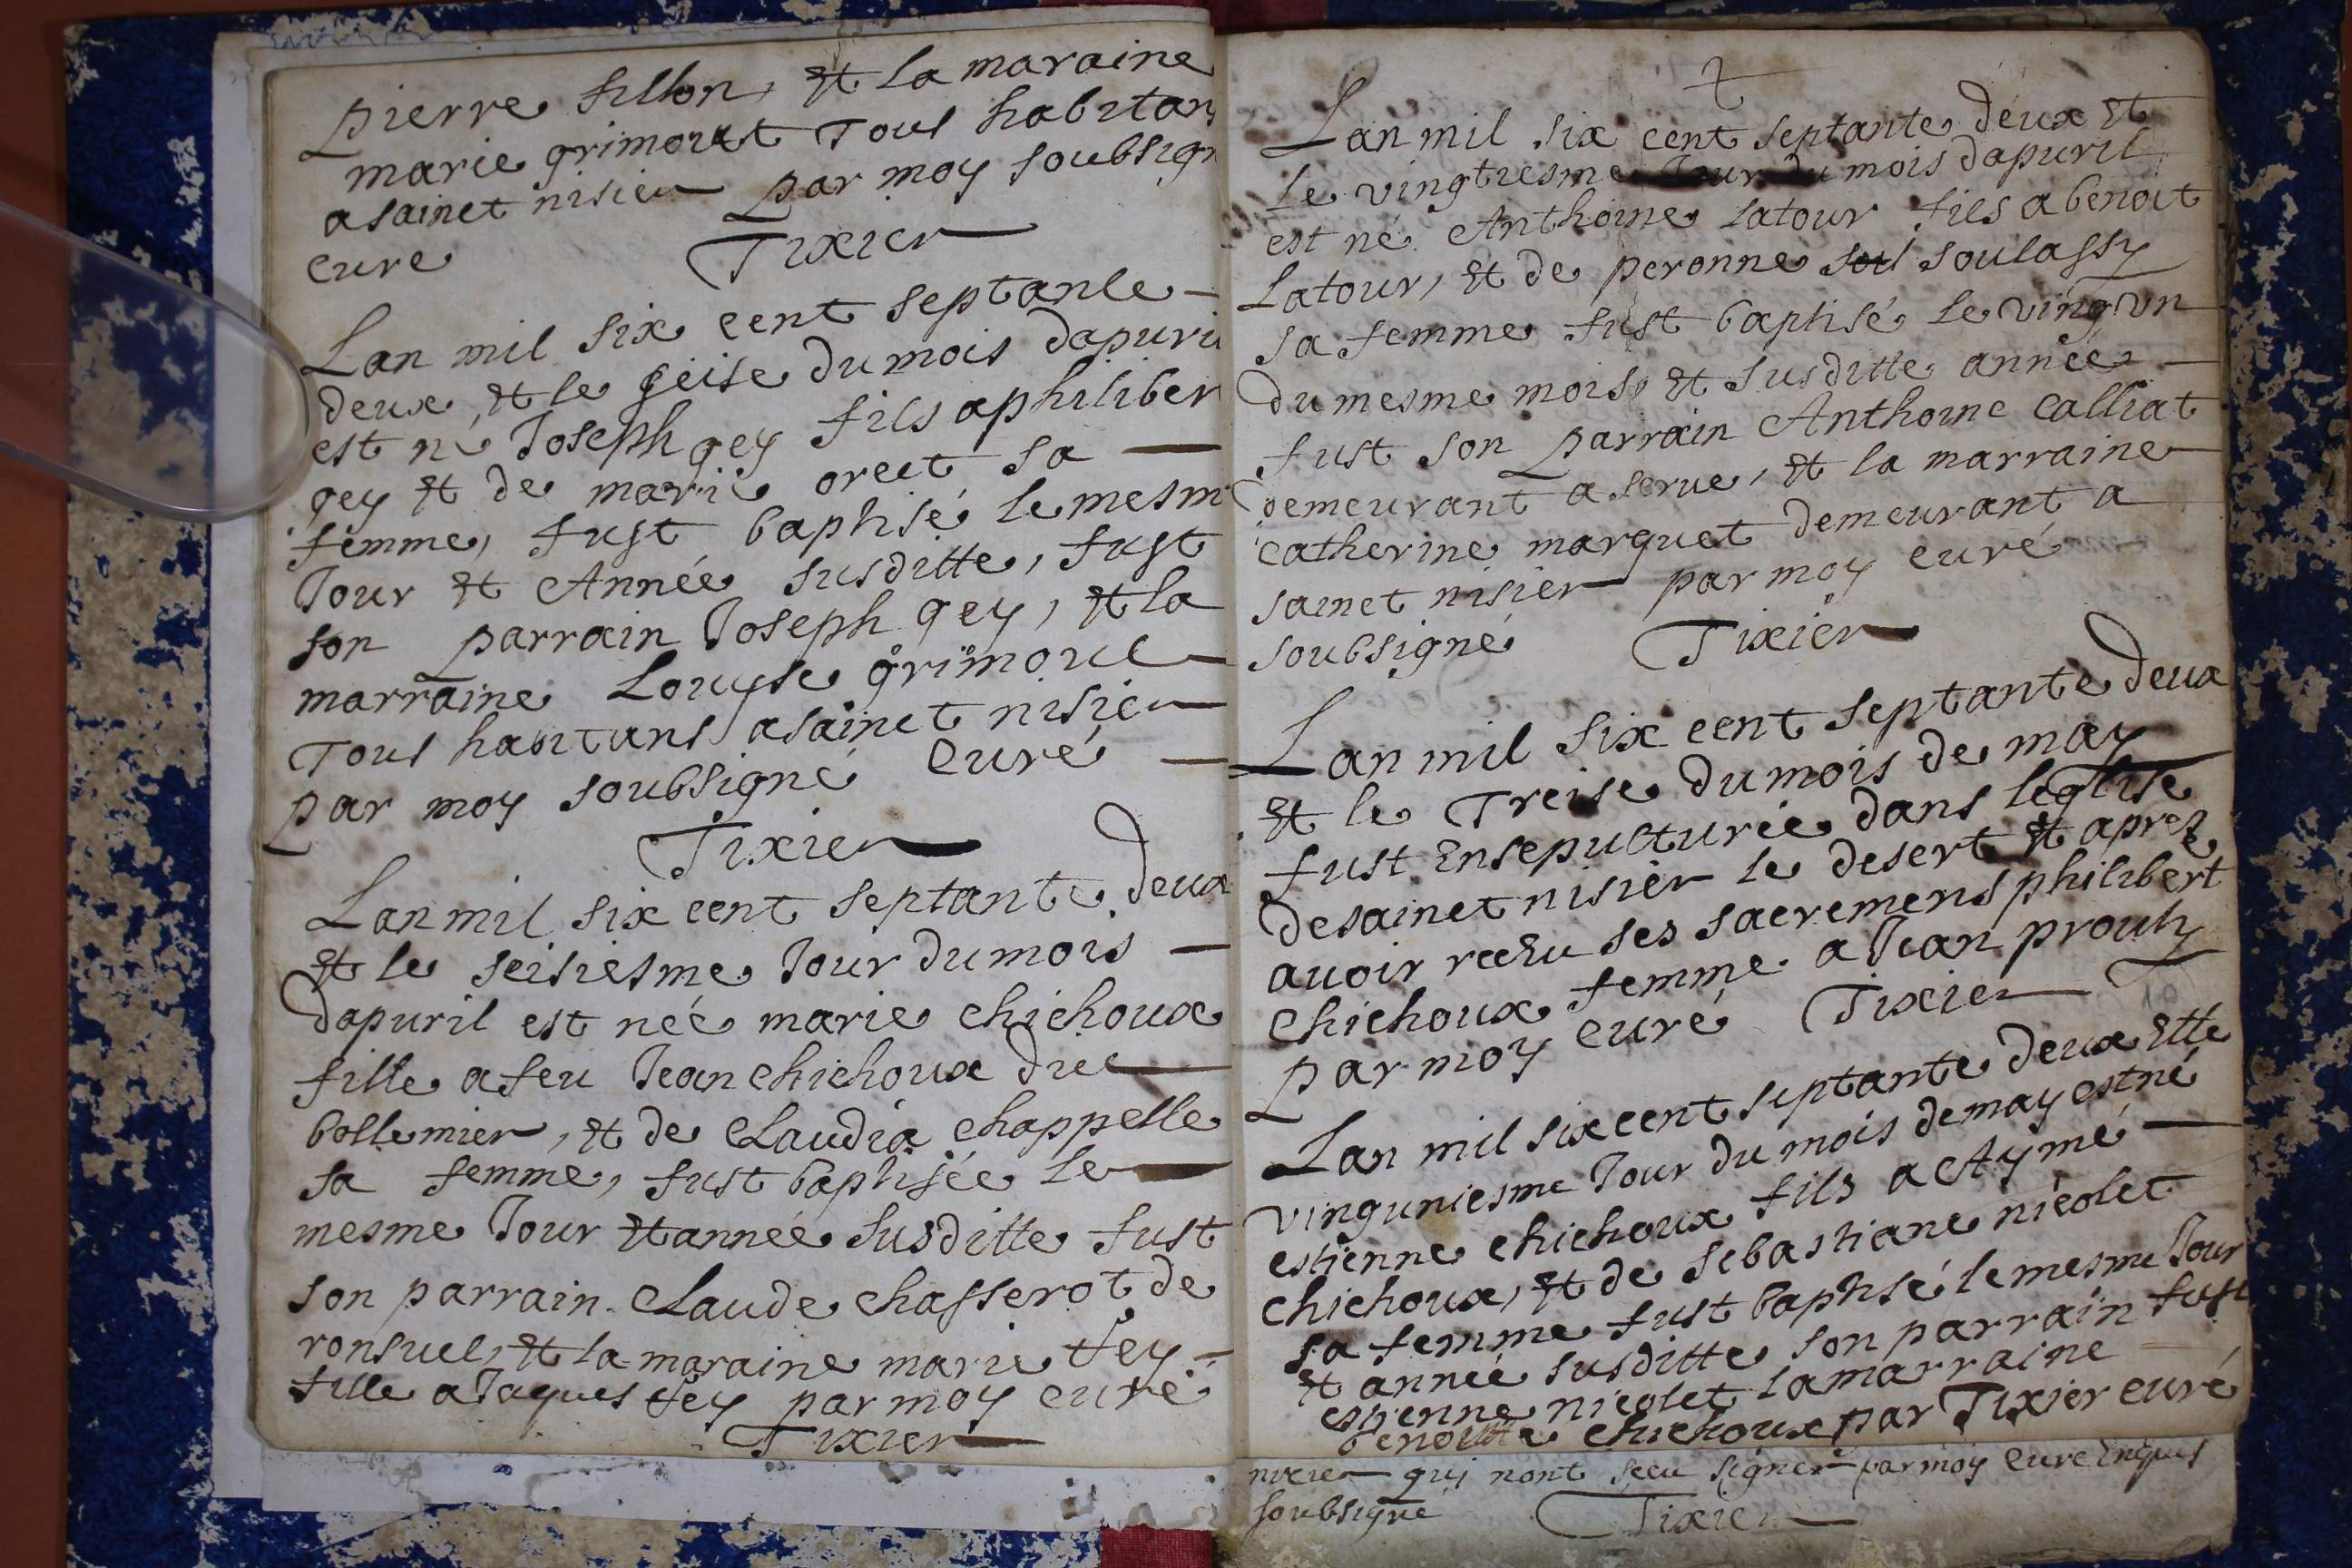 pierre fillon, et la maraine
marie grimout tous habitans
a sainct nisier par moy soubsign
cure Tixier
Lan mil six cent septante
deux, et le seise du mois dapuril
est né Joseph gey fils a philiber
gey et de marie orcet sa
femme, fust baptisé le mesm
Jour et Année susditte, fust
son parrain Joseph gey, et la
marraine Louyse grimout
Tous habitans a sainct nisier
par moy soubsigné curé
Tixier
Lan mil six cent septante deux
et le seisiesme Jour du mois
dapuril est née marie chichoux
fille a feu Jean chichoux dict
bollemier, et de Claudia chappelle
sa femme, fust baptisée le
mesme Jour et année susditte fust
son parrain Claude chasserot de
ronsuel, et la maraine marie fey
fille a Jaques fey par moy curé
Tixier
Lan mil six cent septante deux et
le vingtiesme Jour du mois dapuril
est né Anthoine Latour fils a benoit
Latour, et de peronne soul soulassy
sa femme fust baptisé le ving un
du mesme mois, et susditte année
fust son parrain Anthoine calliat
demeurant a serue, et la marraine
catherine marguet demeurant a
sainct nisier par moy curé
soubsigné Tixier
Lan mil six cent septante deux
et le Treise du mois de may
fust ensepulturée dans leglise
de sainct nisier le desert et apres
auoir receu ses sacremens philibert
chichoux femme a Jean prouh
par moy curé Tixier
Lan mil six cent septante deux et le
vinguniesme Jour du mois de may est né
estienne chichoux fils a Aymé
chichoux, et de sebastiane nicolet
sa femme fust baptisé le mesme Jour
et année susditte son parrain fust
estienne nicolet la marraine
benoitte chichoux par Tixier curé
nixier quj nont sceu signer par moy cure
soubsigné Tixier